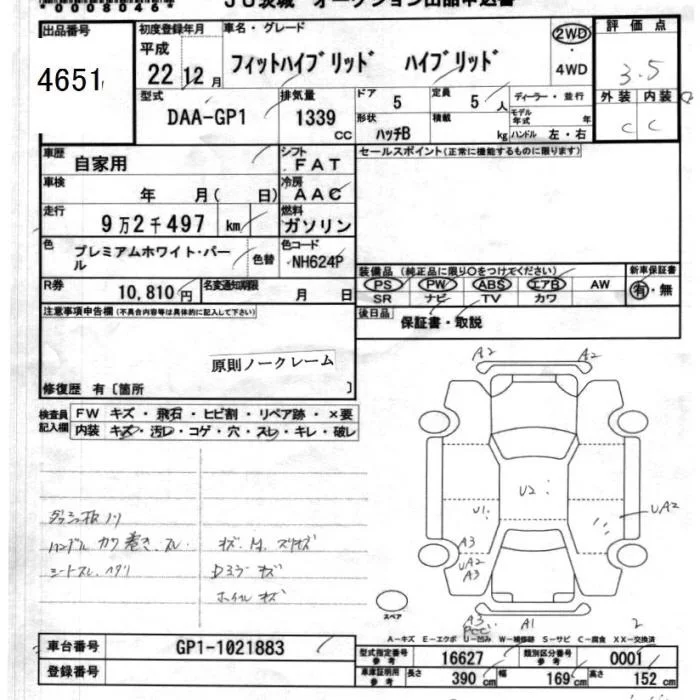 00080464
JU茨城 オークション出品申込書
出品番号 初度登録年月 車名・グレード 2WD 評価点
4651 平成 22 12月 フィットハイブリッド ハイブリッド 4WD 3.5
型式 排気量 ドア 5 定員 5人 ディーラー・並行 外装 内装
DAA-GP1 1339 cc 形状 ハッチB 積載 kg モデル年式 年 ハンドル 左・右 C C
車歴 自家用 シフト FAT セールスポイント(正常に機能するものに限ります)
車検 年 月( 日) 冷房 AAC
走行 9万2千497 km 燃料 ガソリン
色 プレミアムホワイト・パール 色替 色コード NH624P
装備品 (純正品に限り○をつけてください) 新車保証書
R券 10,810円 名変通知期限 月 日 PS PW ABS エアB AW 有・無
SR ナビ TV カワ
注意事項申告欄(不具合内容等は具体的に記入して下さい) 後日品 保証書・取説
原則ノークレーム
修復歴 有〔箇所 〕
検査員記入欄 FW キズ・飛石・ヒビ割・リペア跡・×要
内装 キズ・汚レ・コゲ・穴・スレ・キレ・破レ
A2 A2
U2
U1 UA2
A3
UA2
A3
ダッシュ板ノリ
ハンドル カワ巻き スレ
シートスレ ヘタリ
Dミラー キズ
ホイル キズ
スペア
A3 A1 2
A-キズ E-エクボ U-凹み W-補修跡 S-サビ C-腐食 XX-交換済
車台番号 GP1-1021883 型式指定番号 参考 16627 類別区分番号 参考 0001
登録番号 車庫証明用 参考 長さ 390 cm 幅 169 cm 高さ 152 cm